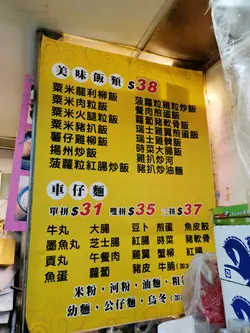 美味飯類 $38
粟米龍利柳飯
粟米肉粒飯
粟米火腿粒飯
粟米豬扒飯
薯仔雞柳飯
揚州炒飯
菠蘿粒紅腸炒飯
菠蘿雞粒炒飯
餐肉煎蛋飯
蘿蔔豬軟骨飯
瑞士雞翼煎蛋飯
瑞士雞髀飯
時菜大腸飯
雞扒炒河
豬扒炒油麵
車仔麵
單拼$31 雙拼$35 拼$37
牛丸 大腸 豆卜 煎蛋 魚皮餃
墨魚丸 芝士腸 紅腸 時菜 豬軟骨
貢丸 午餐肉 雞翼 蟹柳 紅
魚蛋 蘿蔔 豬皮 牛腩
米粉・河粉・油麵・粗
幼麵・公仔麵・烏冬